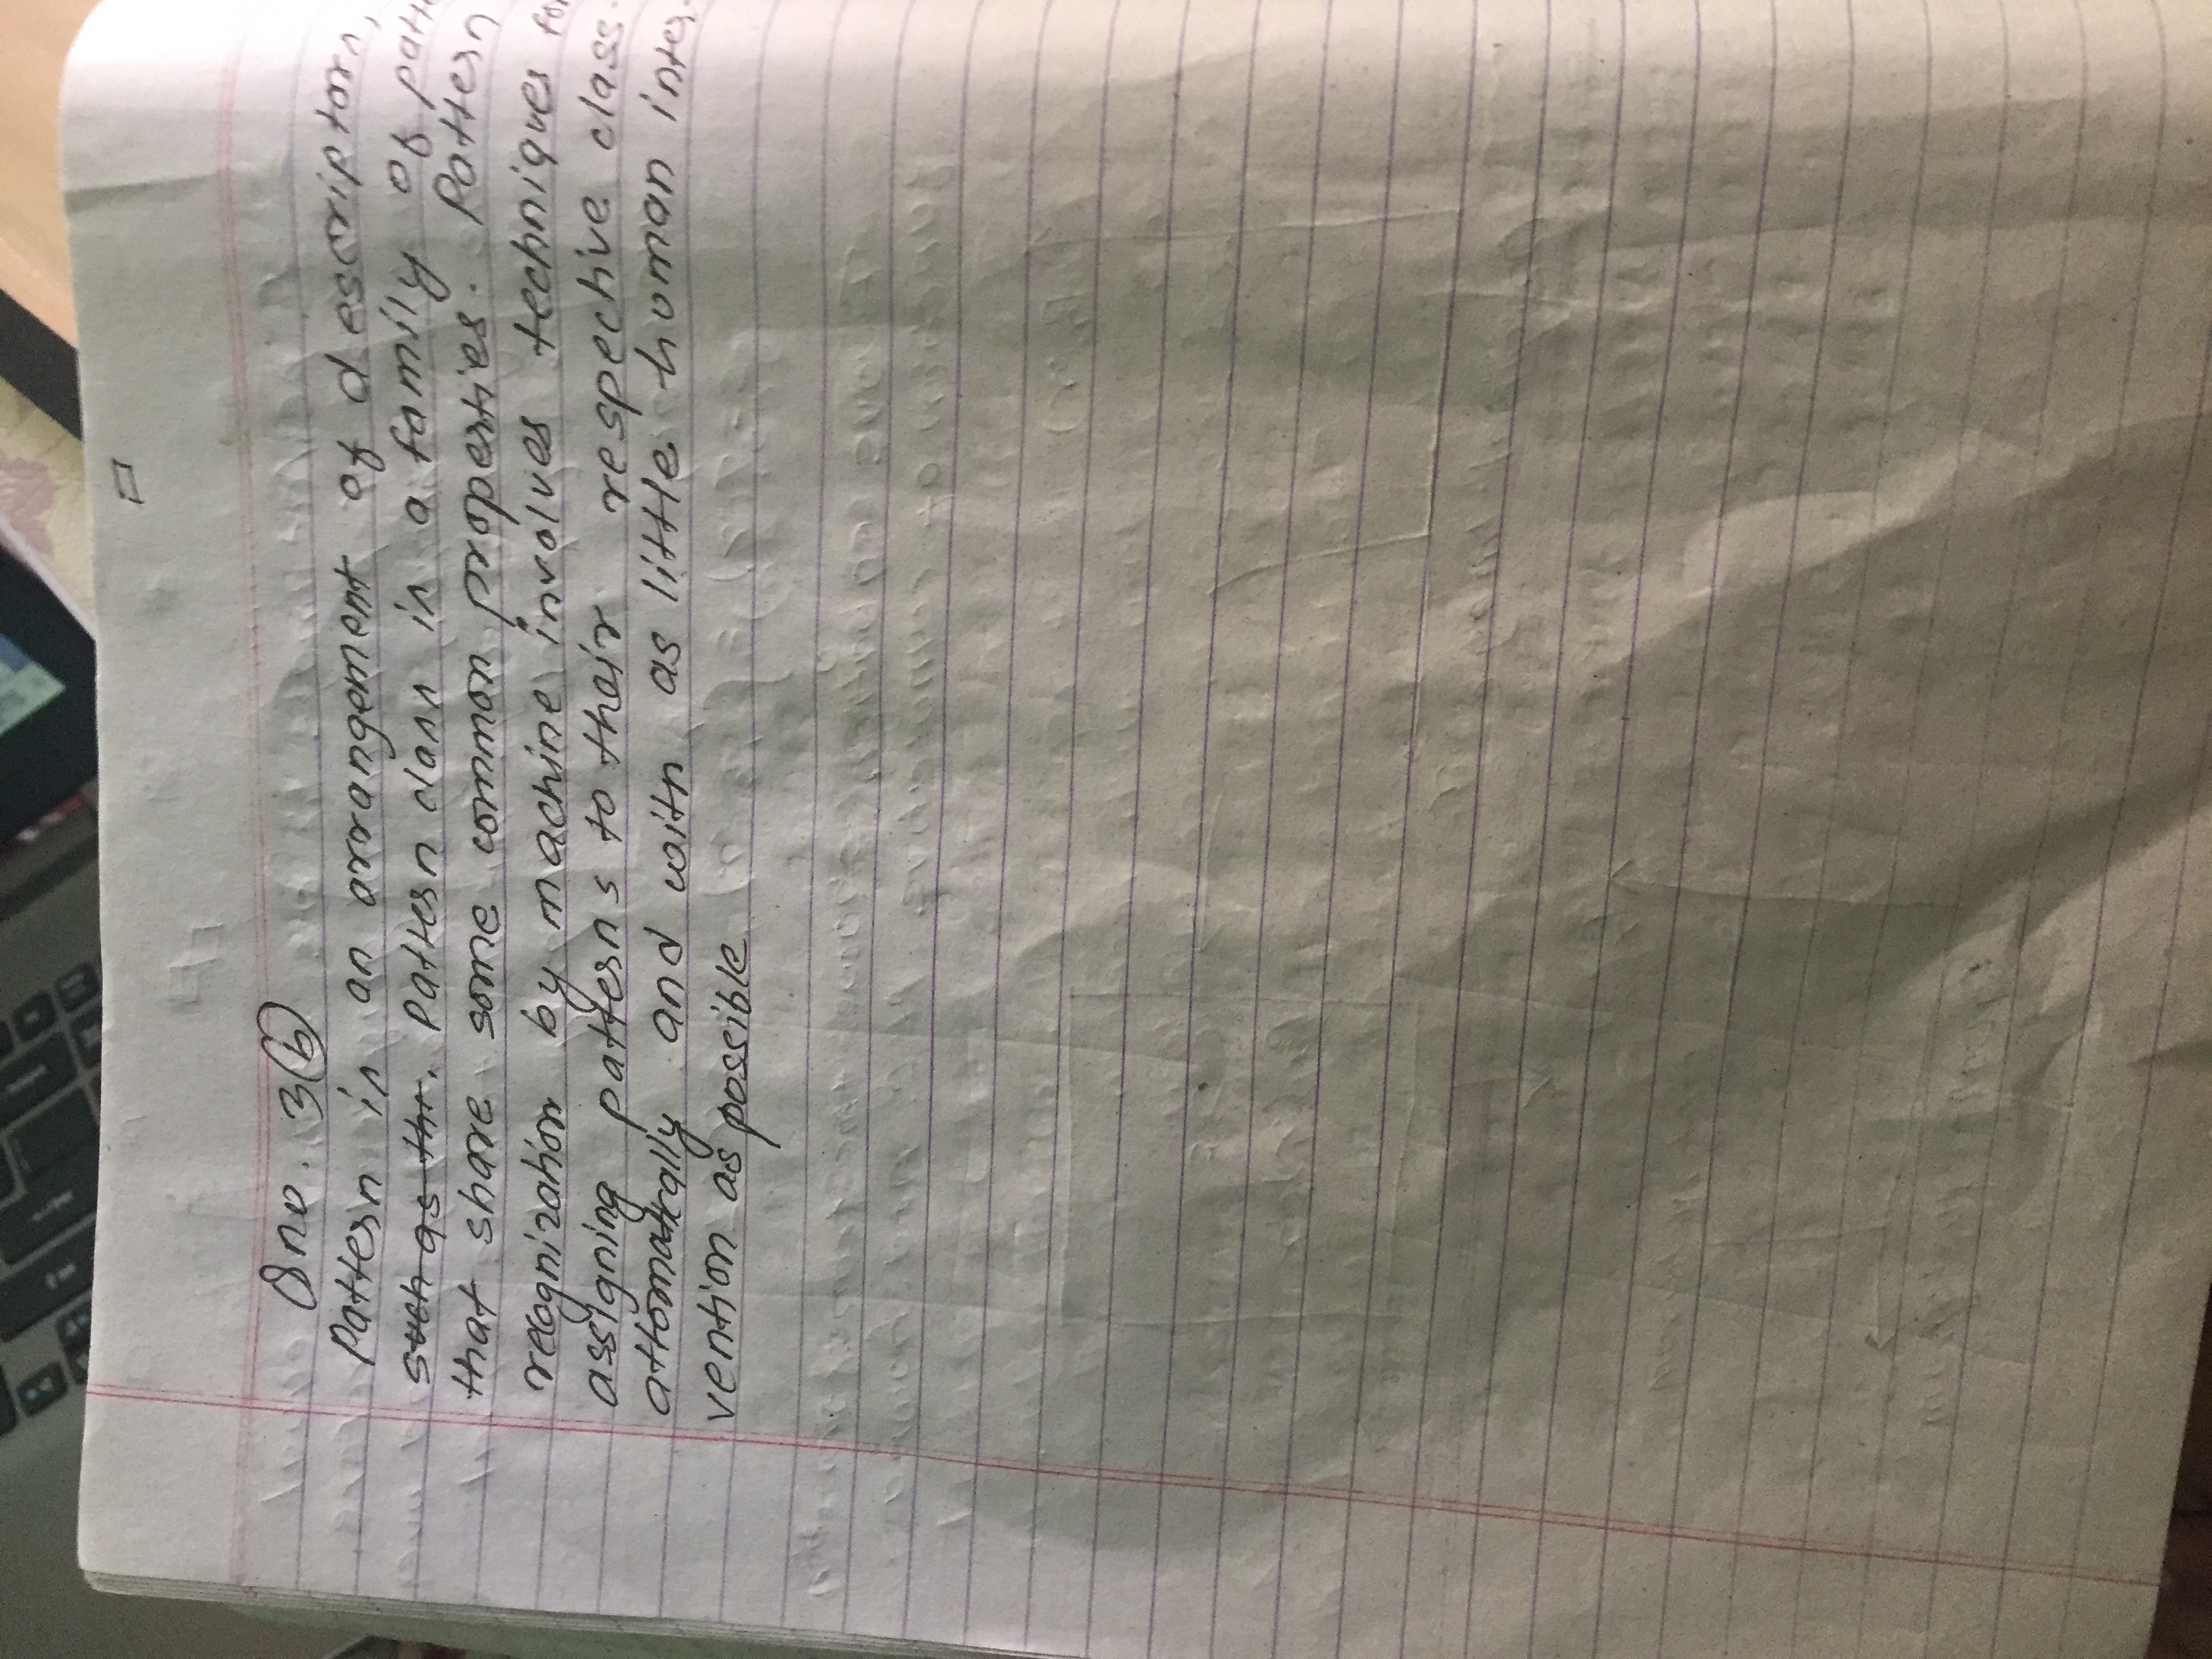 Qno. 3(b)
Pattern is an arrangement of descriptors,
such as the. Pattern class is a family of patte
that share some common properties. Pattern
recognization by machine involves techniques for
assigning patterns to their respective class
attomatically and with as little human inter-
vention as possible